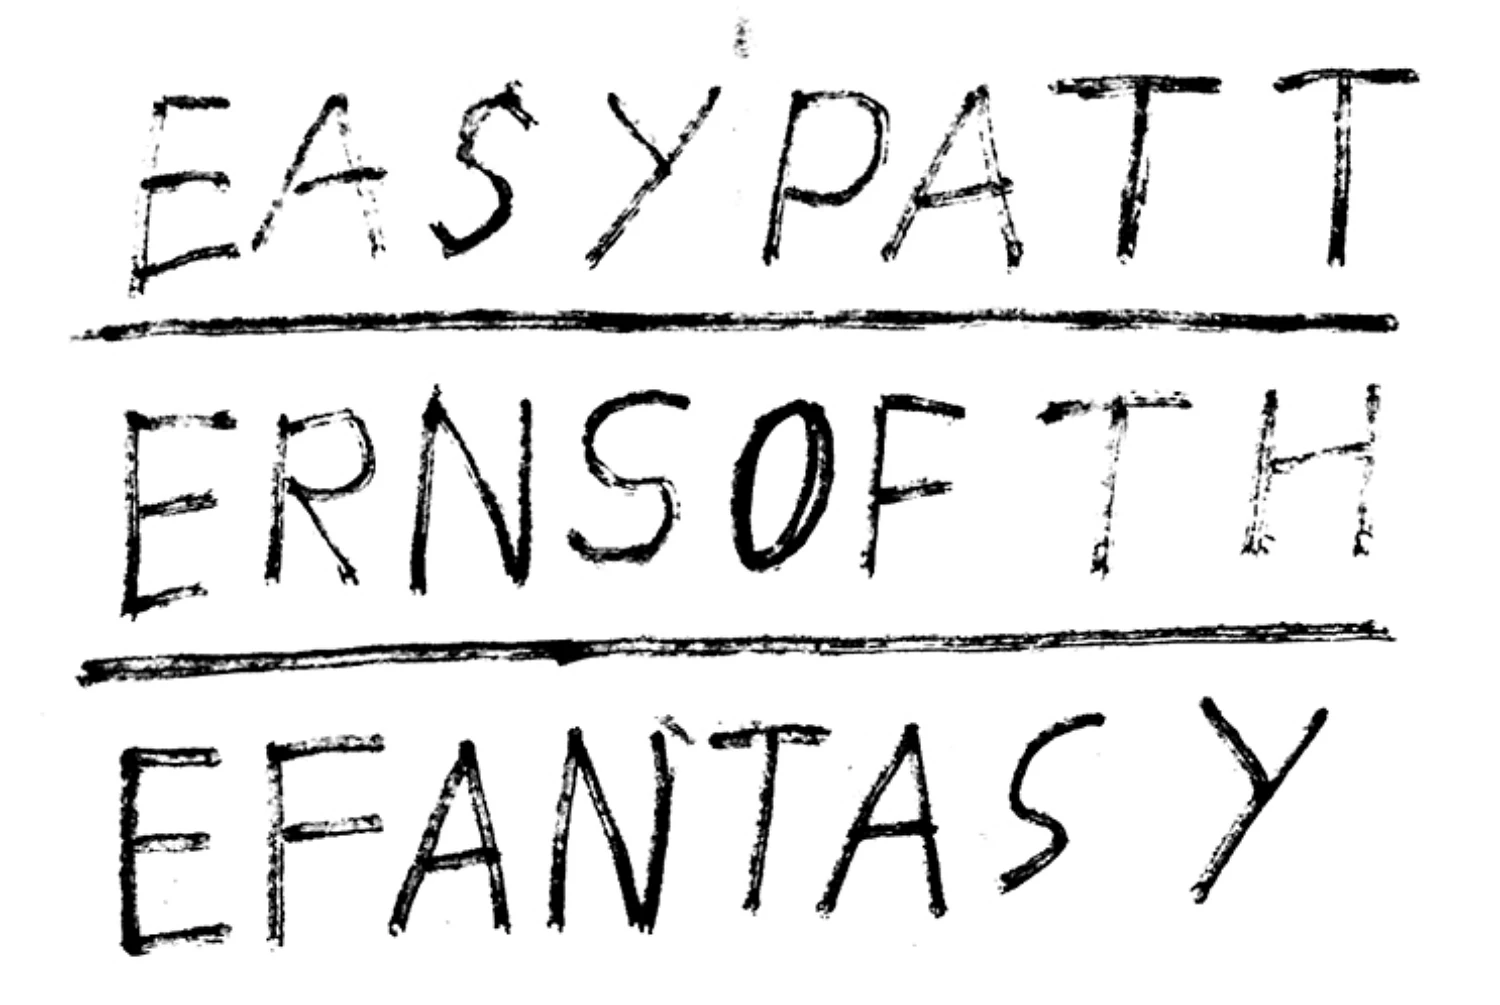 EASYPATT
ERNSOFTH
EFANTASY